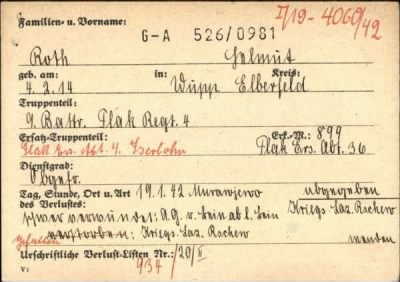 I/19-4060/42
Familien- u. Vorname:
G-A 526/0981
Roth Helmut
geb. am: in: Kreis:
4.2.14 Wupp Elberfeld
Truppenteil:
9. Battr. Flak Regt. 4
Ersatz-Truppenteil: Erk.-M.: 899
Flak Ers. Abt. 4. Iserlohn Flak Ers. Abt. 36
Dienstgrad:
Obgefr.
Tag, Stunde, Ort u. Art 19.1.42 Murawjewo abgegeben
des Verlustes: Kriegs Laz. Rschew
schwer verwundet: A.G. r. Bein ab l. Bein
gefallen verstorben: Kriegs Laz. Rschew wenden
Urschriftliche Verlust-Listen Nr.: /20/II
934/
V: